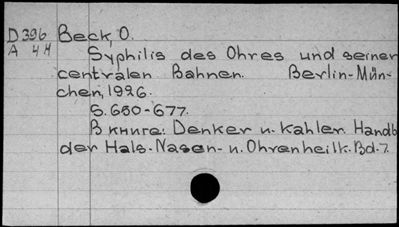 D396 Beck, O.
A 44 Syphilis des Ohres und seiner
centralen Bahnen. Berlin-Mün-
chen, 1926.
S. 650-677.
В книге: Denker u. Kahler. Handb.
der Hals-Nasen- u. Ohrenheilk. Bd. 7.